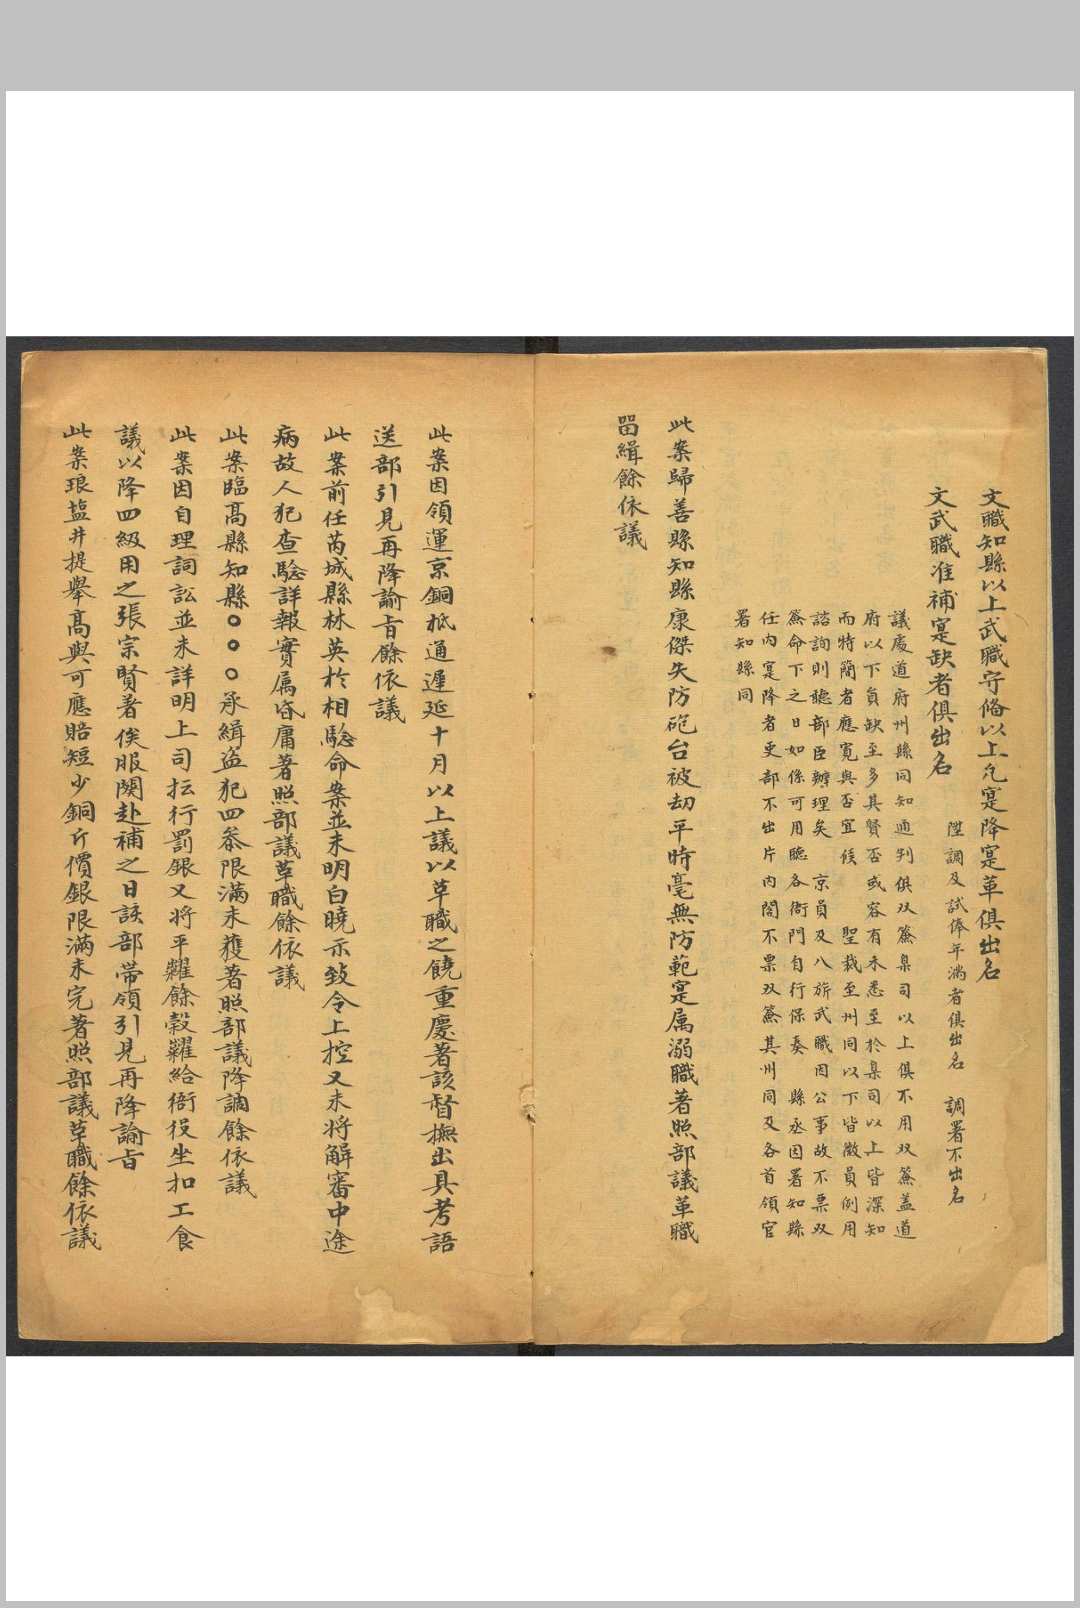 文職知縣以上武職守俻以上凢寔降寔革俱出名
文武職准補寔缺者俱出名
陞調及試俸年滿者俱出名 調署不出名
議處道府州縣同知通判俱双簽臬司以上俱不用双簽盖道
府以下負缺至多其賢否或容有未悉至於臬司以上皆深知
而特簡者應寬與否宜候 聖裁至州同以下皆微員例用
諮詢則聽部臣辦理矣 京員及八旂武職因公事故不票双
簽命下之日如係可用聽各衙門自行保奏 縣丞因署知縣
任內寔降者吏部不出片內閣不票双簽其州同及各首領官
署知縣同
此案歸善縣知縣康傑失防砲台被刼平時毫無防範寔属溺職著照部議革職
畱緝餘依議
此案因領運京銅抵通遲延十月以上議以革職之饒重慶著該督撫出具考語
送部引見再降諭旨餘依議
此案前任芮城縣林英於相驗命案並未明白曉示致令上控又未將解審中途
病故人犯查驗詳報實属昏庸著照部議革職餘依議
此案臨高縣知縣○○○承緝盗犯四叅限滿未獲著照部議降調餘依議
此案因自理詞訟並未詳明上司抎行罰銀又將平糶餘穀糶給衙役坐扣工食
議以降四級用之張宗賢著俟服闋赴補之日該部帶領引見再降諭旨
此案琅塩井提舉高與可應賠短少銅斤價銀限滿未完著照部議革職餘依議